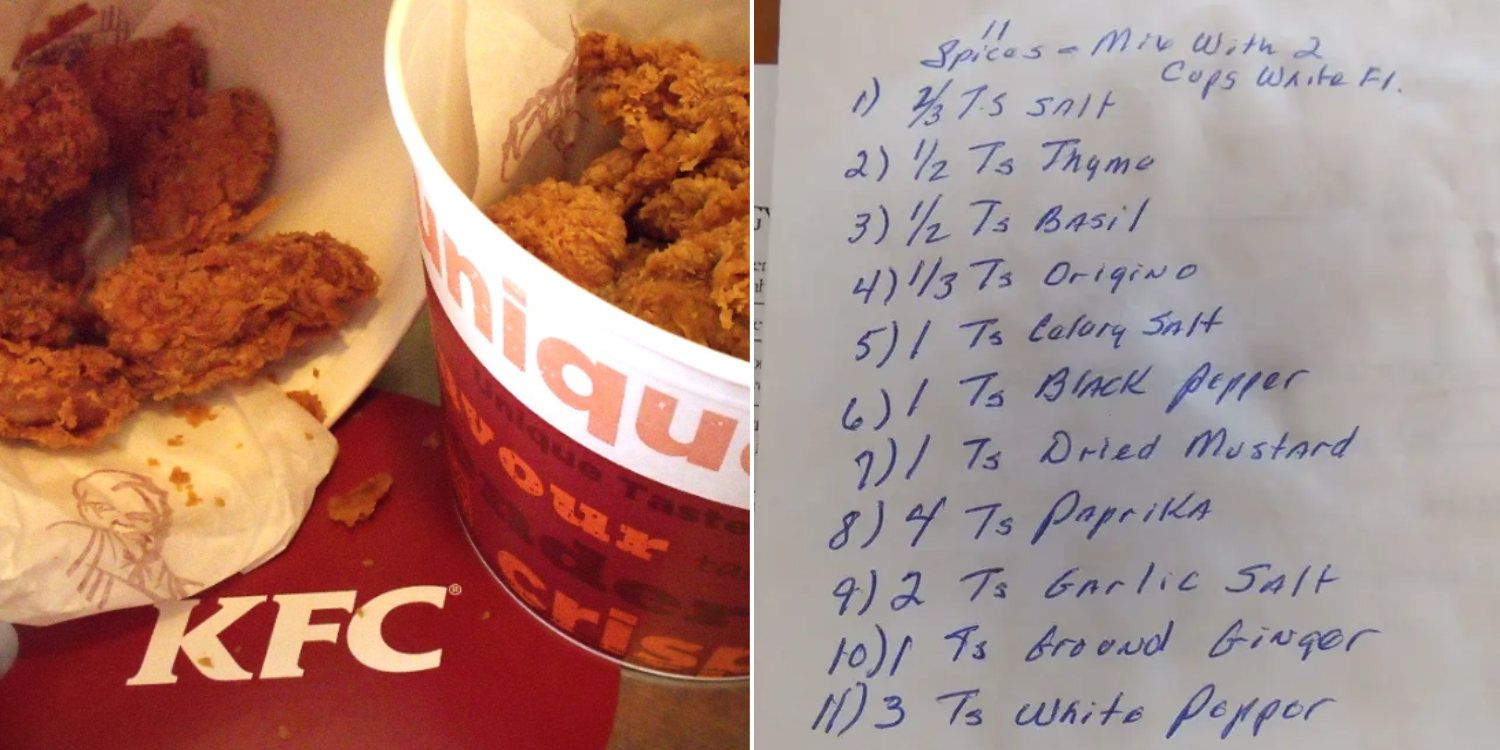 unique
Unique Taste
your
Crisp
KFC®
11
Spices - Mix With 2
Cups White Fl.
1) 2/3 TS SAlt
2) 1/2 Ts Thyme
3) 1/2 Ts BAsil
4) 1/3 Ts OrigiNo
5) 1 Ts Celary SAlt
6) 1 Ts BlAcK Pepper
7) 1 Ts Dried MustArd
8) 4 Ts PApriKA
9) 2 Ts GArlic SAlt
10) 1 Ts Ground GiNger
11) 3 Ts White Pepper